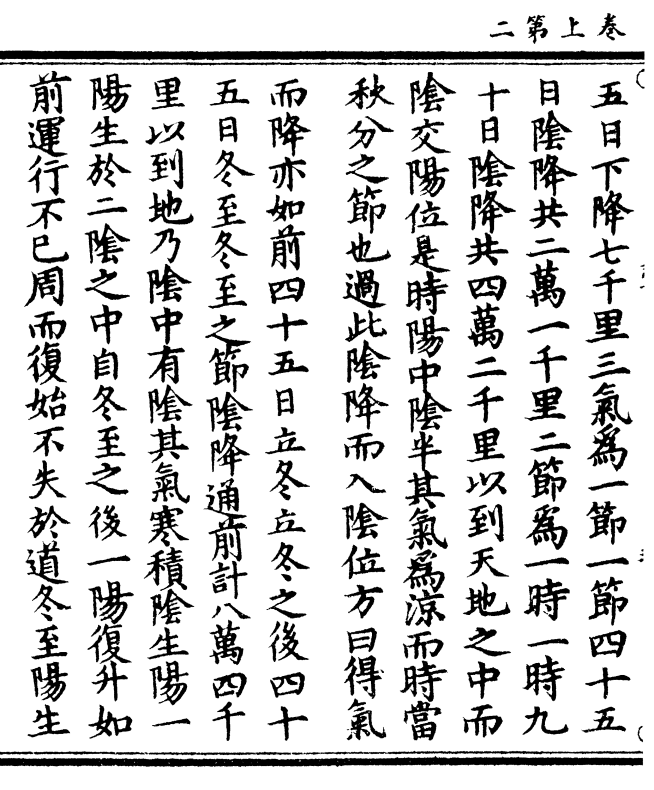 卷上第二
五日下降七千里三氣爲一節一節四十五
日陰降共二萬一千里二節爲一時一時九
十日陰降共四萬二千里以到天地之中而
陰交陽位是時陽中陰半其氣爲涼而時當
秋分之節也過此陰降而入陰位方曰得氣
而降亦如前四十五日立冬立冬之後四十
五日冬至冬至之節陰降通前計八萬四千
里以到地乃陰中有陰其氣寒積陰生陽一
陽生於二陰之中自冬至之後一陽復升如
前運行不已周而復始不失於道冬至陽生